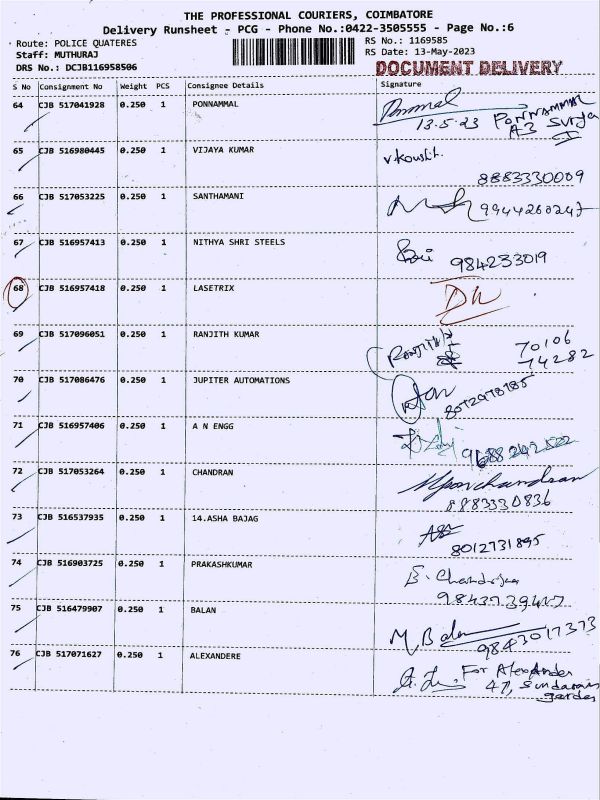 THE PROFESSIONAL COURIERS, COIMBATORE
Delivery Runsheet - PCG - Phone No.:0422-3505555 - Page No.:6
Route: POLICE QUATERES RS No.: 1169585
Staff: MUTHURAJ RS Date: 13-May-2023
DRS No.: DCJB116958506 DOCUMENT DELIVERY
S No Consignment No Weight PCS Consignee Details Signature
64 CJB 517041928 0.250 1 PONNAMMAL
13.5.23 PONNAMMAL
A3 Surya
65 CJB 516980445 0.250 1 VIJAYA KUMAR
8883330009
66 CJB 517053225 0.250 1 SANTHAMANI
9944260247
67 CJB 516957413 0.250 1 NITHYA SHRI STEELS
984233019
68 CJB 516957418 0.250 1 LASETRIX
69 CJB 517096051 0.250 1 RANJITH KUMAR
70106
74282
70 CJB 517086476 0.250 1 JUPITER AUTOMATIONS
8072978185
71 CJB 516957406 0.250 1 A N ENGG
9688242522
72 CJB 517053264 0.250 1 CHANDRAN
8883330836
73 CJB 516537935 0.250 1 14.ASHA BAJAG
8012731895
74 CJB 516903725 0.250 1 PRAKASHKUMAR
75 CJB 516479907 0.250 1 BALAN
M. Balan
9843017373
76 CJB 517071627 0.250 1 ALEXANDERE
For Alexander
47, Sundaram
garden